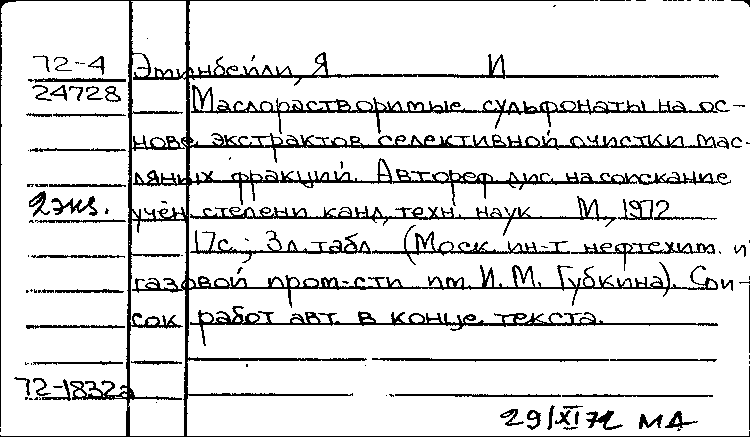 72-4 Этинбейли, Я И
24728 Маслорастворимые сульфонаты на ос-
нове экстрактов селективной очистки мас-
ляных фракций. Автореф. дис. на соискание
2 экз. учен. степени канд. техн. наук М., 1972
17с.; 3 л. табл. (Моск. ин-т нефтехим. и
газовой пром-сти им. И. М. Губкина). Спи-
сок работ авт. в конце текста.
72-1832а
29/XI 72 МД